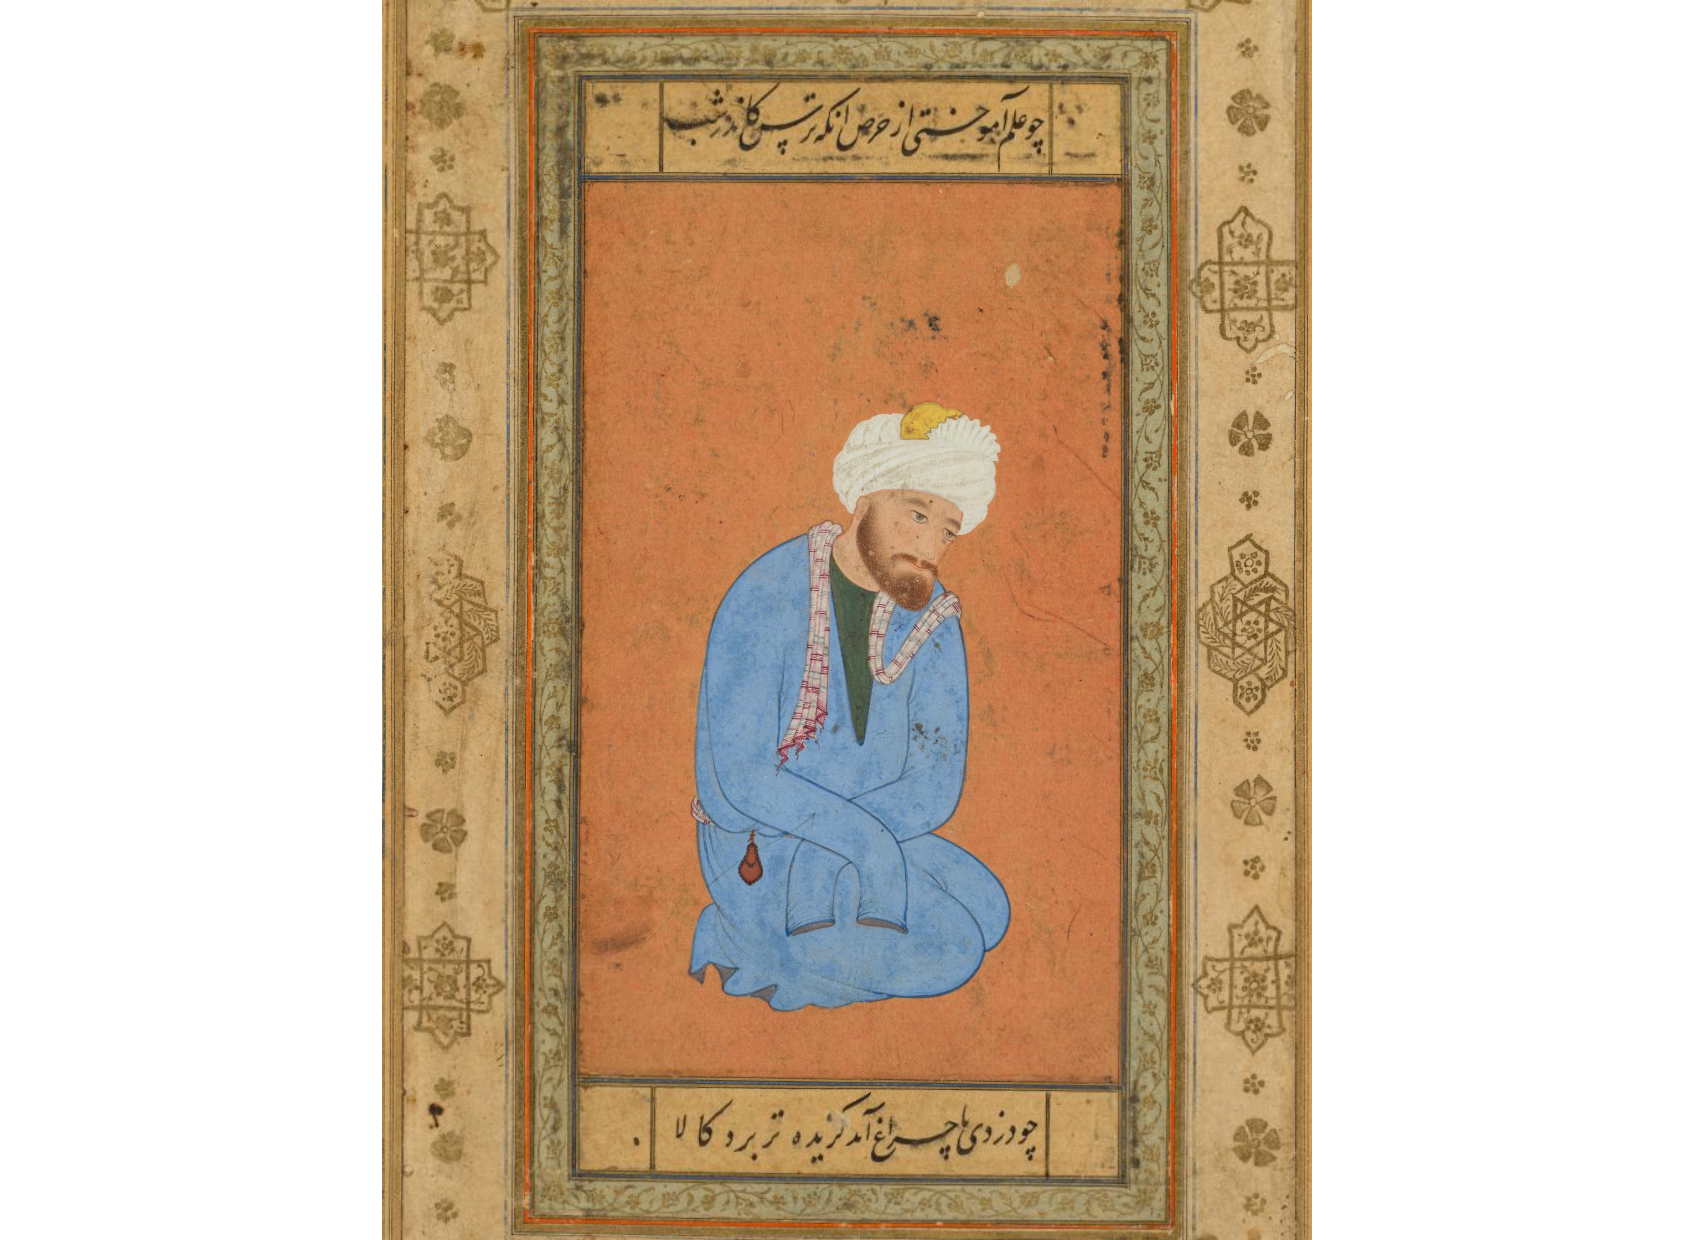 چو علم آموختی از حرص انکه ترس کاندر شب
چو دزدی با چراغ آمد کزیده تر برد کالا